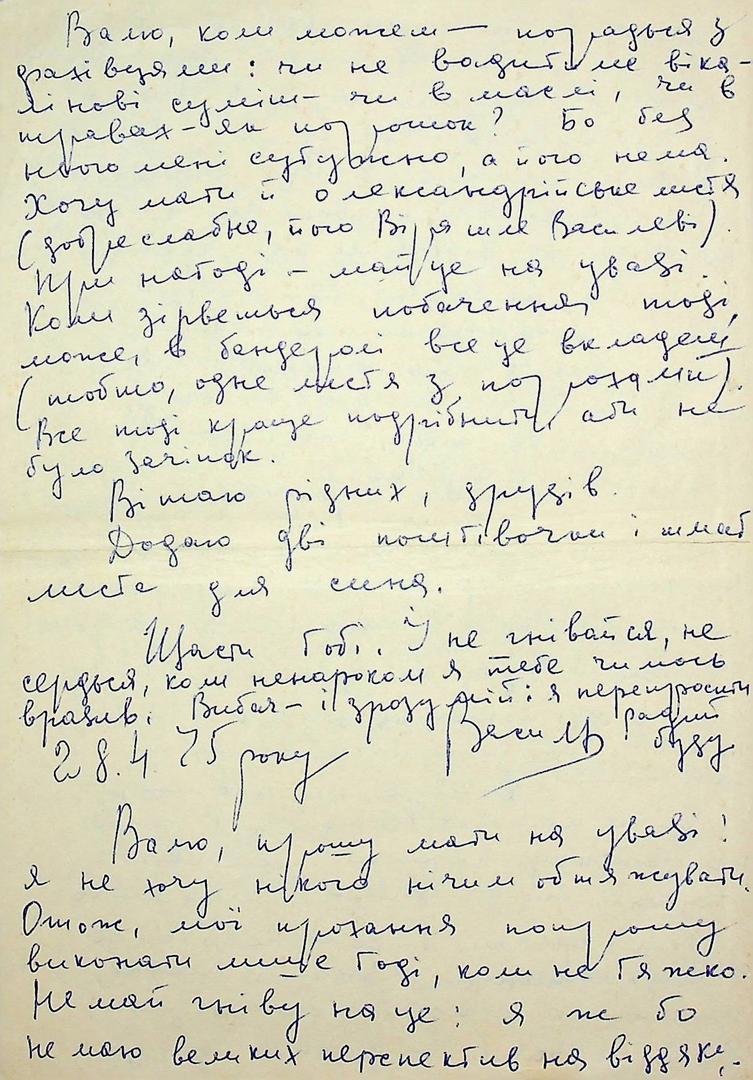 Валю, коли можеш — порадься з
фахівцями: чи не вадитиме віка-
лінові суміш — чи в маслі, чи в
травах — як порошок? Бо без
нього мені сутужно, а його нема.
Хочу мати й олександрійське листя
(добре слабке, його Віра шле Василеві).
При нагоді — май це на увазі.
Коли зірветься побачення, тоді,
може, в бандеролі все це вкладеш
(тобто, одне листя з порохами).
Все тоді краще подрібнити, аби не
було зачіпок.
Вітаю рідних, друзів.
Додаю дві поштівочки і шмат
листа для сина.
Щасти Тобі. Й не гнівайся, не
сердься, коли ненароком я тебе чимось
вразив. Вибач — і зрозумій: я перепросити
радий
28.4.75 року Василь буду
Валю, прошу мати на увазі!
я не хочу нікого нічим обтяжувати.
Отож, мої прохання попрошу
виконати лише тоді, коли не тяжко.
Не май гніву на це: я ж бо
не маю великих перспектив на віддяку.